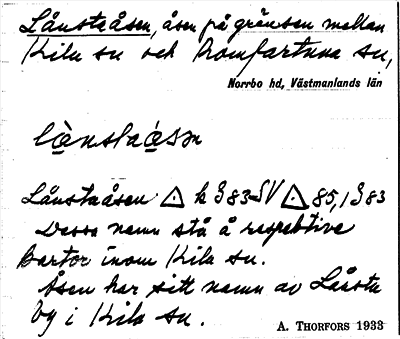 Lånstaåsen, åsen på gränsen mellan
Kila sn och Romfartuna sn,
Norrbo hd, Västmanlands län
lånstaåsɐn
Lånstaåsen △ k § 83 SV △ 85,1 § 83
Dessa namn stå å respektive
kartor inom Kila sn.
Åsen har sitt namn av Lånsta
by i Kila sn.
A. THORFORS 1933